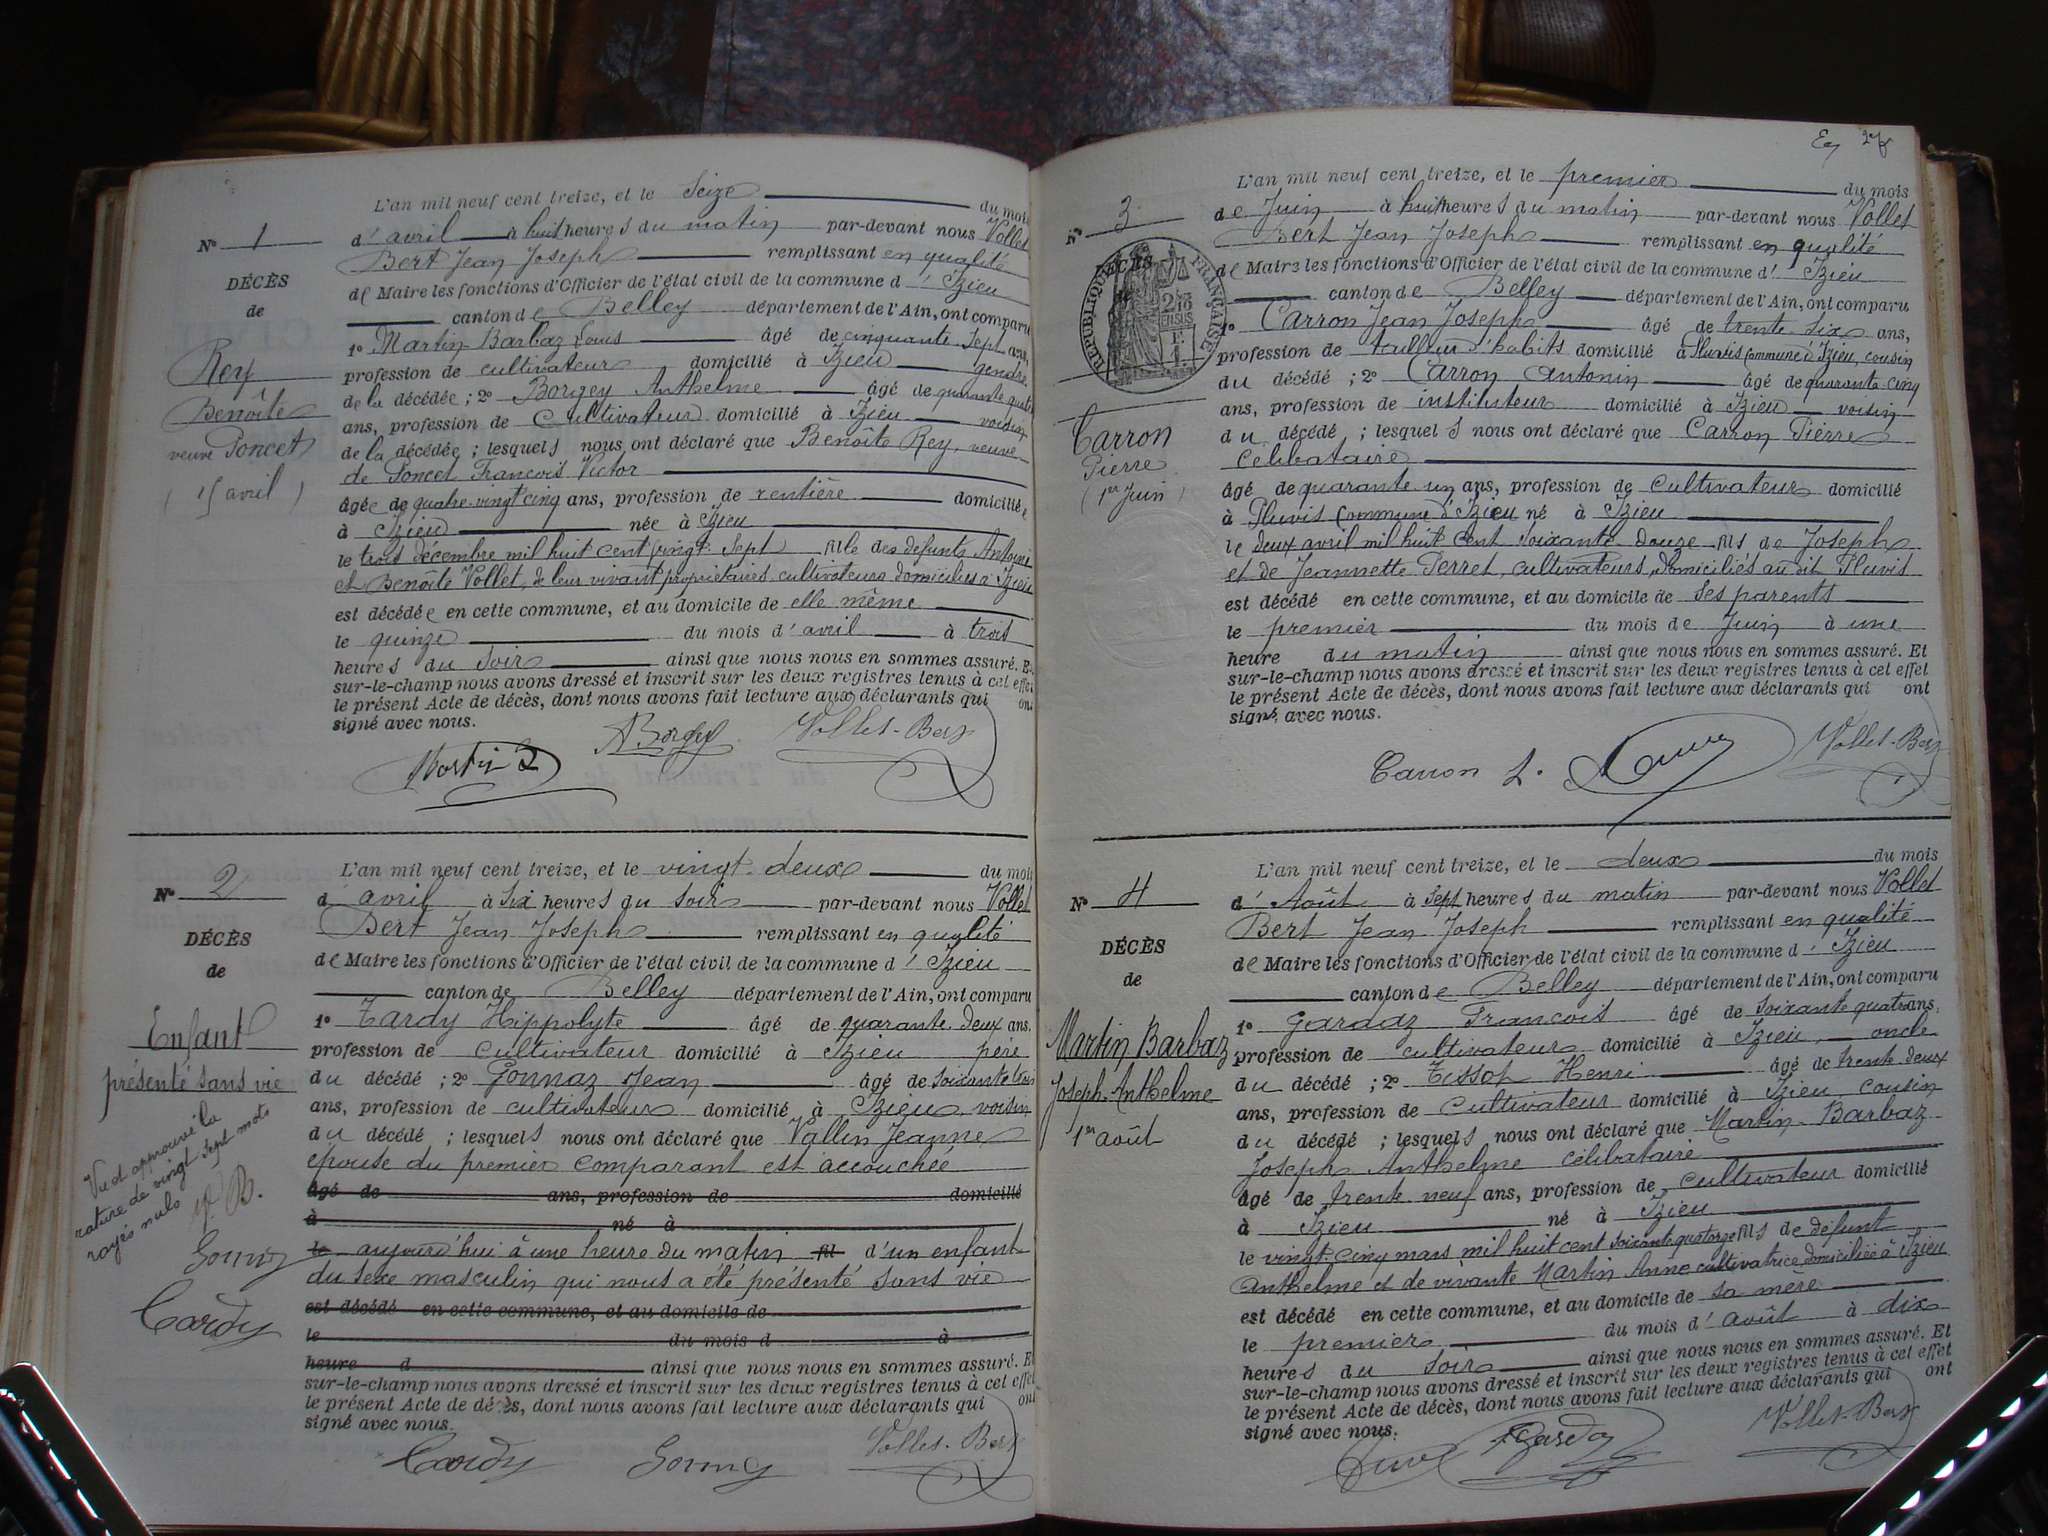 L'an mil neuf cent treize, et le Seize du mois
N° 1
d'avril à huit heures du matin par-devant nous Vollet
Bert Jean Joseph remplissant en qualité
DÉCÈS
de Maire les fonctions d'Officier de l'état civil de la commune d'Izieu
de
canton de Belley département de l'Ain, ont comparu
1° Martin-Barbaz Louis âgé de cinquante-sept ans,
Rey
profession de cultivateur domicilié à Izieu gendre
Benoîte
de la décédée ; 2° Borgey Anthelme âgé de quarante quatre
ans, profession de cultivateur domicilié à Izieu voisin
veuve Poncet
de la décédée ; lesquels nous ont déclaré que Benoîte Rey, veuve
de Poncet François Victor
( 15 avril )
âgée de quatre-vingt cinq ans, profession de rentière domiciliée
à Izieu née à Izieu
le trois décembre mil huit cent vingt-sept fille des défunts Antoine
et Benoîte Vollet, de leur vivant propriétaires, cultivateurs domiciliés à Izieu
est décédée en cette commune, et au domicile de elle même
le quinze du mois d'avril à trois
heures du soir ainsi que nous nous en sommes assuré. Et
sur-le-champ nous avons dressé et inscrit sur les deux registres tenus à cet effet
le présent Acte de décès, dont nous avons fait lecture aux déclarants qui ont
signé avec nous.
Martin L
A Borgey
Vollet-Bert
L'an mil neuf cent treize, et le vingt-deux du mois
N° 2
d'avril à six heures du soir par-devant nous Vollet
Bert Jean Joseph remplissant en qualité
DÉCÈS
de Maire les fonctions d'Officier de l'état civil de la commune d'Izieu
de
canton de Belley département de l'Ain, ont comparu
1° Tardy Hippolyte âgé de quarante-deux ans,
Enfant
profession de cultivateur domicilié à Izieu père
présenté sans vie
du décédé ; 2° Gonnaz Jean âgé de soixante trois
ans, profession de cultivateur domicilié à Izieu voisin
du décédé ; lesquels nous ont déclaré que Vallin Jeanne
épouse du premier comparant est accouchée
Vu et approuvé la
rature de vingt sept mots
rayés nuls V. B.
âgé de ans, profession de domicilié
à né à
Gonnaz
le aujourd'hui à une heure du matin fil d'un enfant
du sexe masculin qui nous a été présenté sans vie
Tardy
est décédé en cette commune, et au domicile de
le du mois d à
heure d ainsi que nous nous en sommes assuré. Et
sur-le-champ nous avons dressé et inscrit sur les deux registres tenus à cet effet
le présent Acte de décès, dont nous avons fait lecture aux déclarants qui ont
signé avec nous.
Tardy
Gonnaz
Vollet-Bert
L'an mil neuf cent treize, et le premier du mois
N° 3
de Juin à huit heures du matin par-devant nous Vollet
Bert Jean Joseph remplissant en qualité
DÉCÈS
RÉPUBLIQUE FRANÇAISE
de Maire les fonctions d'Officier de l'état civil de la commune d'Izieu
canton de Belley département de l'Ain, ont comparu
1° Carron Jean Joseph âgé de trente-six ans,
profession de tailleur d'habits domicilié à Pluvis commune d'Izieu, cousin
du décédé ; 2° Carron Antonin âgé de quarante-cinq
ans, profession de instituteur domicilié à Izieu voisin
Carron
du décédé ; lesquels nous ont déclaré que Carron Pierre
Pierre
célibataire
(1er Juin)
âgé de quarante un ans, profession de cultivateur domicilié
à Pluvis commune d'Izieu né à Izieu
le deux avril mil huit cent soixante-douze fils de Joseph
et de Jeannette Perret, cultivateurs, domiciliés au dit Pluvis
est décédé en cette commune, et au domicile de ses parents
le premier du mois de Juin à une
heure du matin ainsi que nous nous en sommes assuré. Et
sur-le-champ nous avons dressé et inscrit sur les deux registres tenus à cet effet
le présent Acte de décès, dont nous avons fait lecture aux déclarants qui ont
signé avec nous.
Carron
Vollet-Bert
L'an mil neuf cent treize, et le deux du mois
N° 4
d'Août à sept heures du matin par-devant nous Vollet
Bert Jean Joseph remplissant en qualité
DÉCÈS
de Maire les fonctions d'Officier de l'état civil de la commune d'Izieu
de
canton de Belley département de l'Ain, ont comparu
1° Gardaz François âgé de soixante quatre ans,
Martin Barbaz
profession de cultivateur domicilié à Izieu, oncle
Joseph-Anthelme
du décédé ; 2° Tissot Henri âgé de trente-deux
ans, profession de cultivateur domicilié à Izieu cousin
1er août
du décédé ; lesquels nous ont déclaré que Martin-Barbaz
Joseph Anthelme célibataire
âgé de trente neuf ans, profession de cultivateur domicilié
à Izieu né à Izieu
le vingt-cinq mars mil huit cent soixante quatorze fils de défunt
Anthelme et de vivante Martin Anne cultivatrice domiciliée à Izieu
est décédé en cette commune, et au domicile de sa mère
le premier du mois d'août à dix
heures du soir ainsi que nous nous en sommes assuré. Et
sur-le-champ nous avons dressé et inscrit sur les deux registres tenus à cet effet
le présent Acte de décès, dont nous avons fait lecture aux déclarants qui ont
signé avec nous.
Gardaz
Vollet-Bert